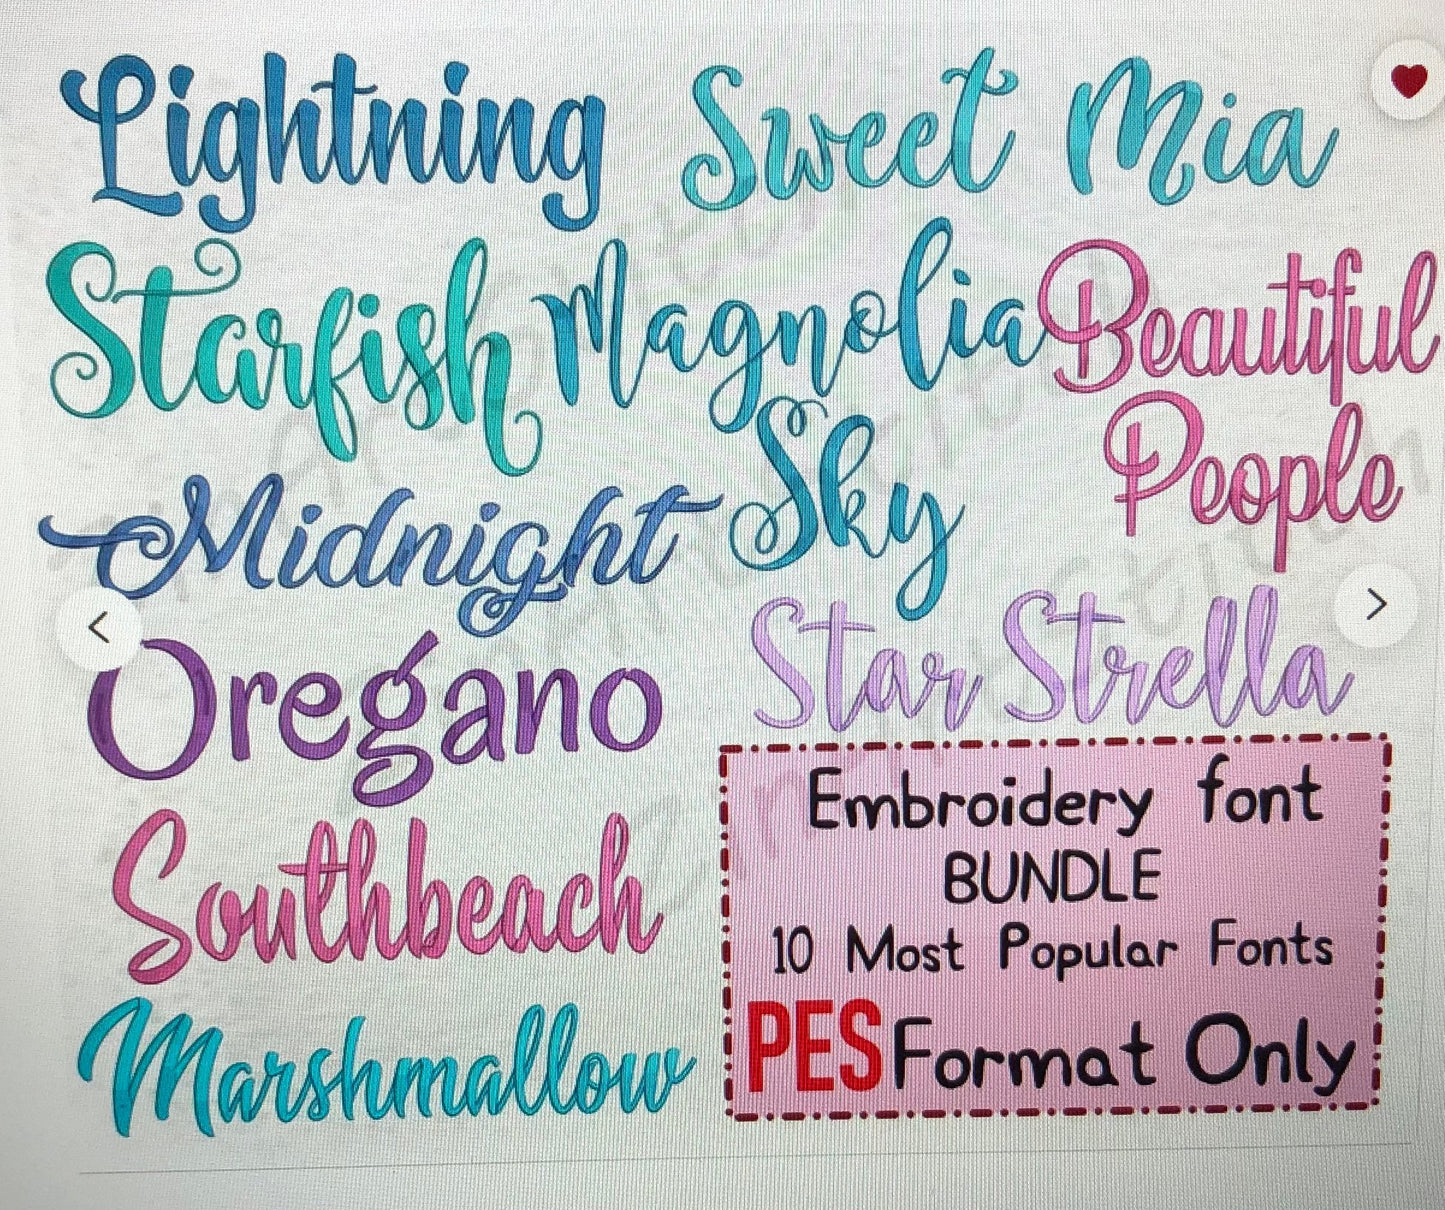 Lightning
Sweet Mia
Starfish
Magnolia Sky
Beautiful People
Midnight
Star Strella
Oregano
Southbeach
Marshmallow
Embroidery font
BUNDLE
10 Most Popular Fonts
PES Format Only